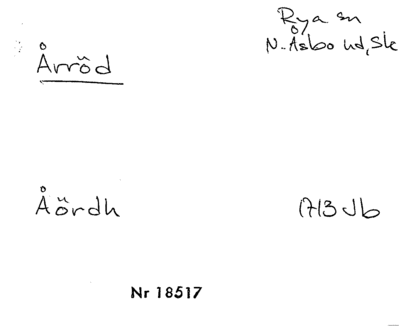 Rya sn
Årröd
N. Åsbo hd, Sk
Åördh
1713 Jb
Nr 18517